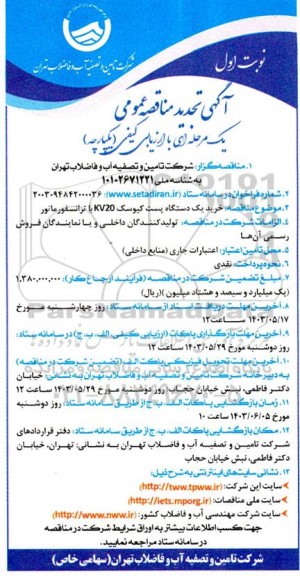 شرکت تامین و تصفیه آب و فاضلاب تهران
نوبت اول
آگهی تجدید مناقصه عمومی
یک مرحله ای با ارزیابی کیفی (یکپارچه)
۱. مناقصه‌گزار: شرکت تامین و تصفیه آب و فاضلاب تهران
به شناسه ملی ۱۰۱۰۲۶۷۱۲۲۱
۲. شماره فراخوان در سامانه ستاد (www.setadiran.ir): ۲۰۰۳۰۹۴۸۴۲۰۰۰۰۳۶
۳. موضوع مناقصه: خرید یک دستگاه پست کیوسک KV20 با ترانسفورماتور
۴. الزامات شرکت در مناقصه: تولیدکنندگان داخلی و یا نمایندگان فروش
رسمی آن‌ها
۵. محل تامین اعتبار: اعتبارات جاری (منابع داخلی)
۶. نحوه پرداخت: نقدی
۷. مبلغ تضمین شرکت در مناقصه (فرآیند ارجاع کار): ۱.۳۸۰.۰۰۰.۰۰۰
(یک میلیارد و سیصد و هشتاد میلیون) (ریال)
۸. آخرین مهلت دریافت اسناد از سامانه ستاد: روز چهارشنبه مورخ
۱۴۰۳/۰۵/۱۷ ساعت ۱۲
۹. آخرین مهلت بارگذاری پاکات (ارزیابی کیفی، الف، ب، ج) در سامانه ستاد:
روز دوشنبه مورخ ۱۴۰۳/۰۵/۲۹ ساعت ۱۲
۱۰. آخرین مهلت تحویل فیزیکی پاکت الف (تضمین شرکت در مناقصه)
خیابان
دکتر فاطمی، نبش خیابان حجاب روز دوشنبه مورخ ۱۴۰۳/۰۵/۲۹ ساعت ۱۲
۱۱. زمان بازگشایی پاکات الف، ب، ج از طریق سامانه ستاد: روز دوشنبه
مورخ ۱۴۰۳/۰۶/۰۵ ساعت ۱۰
۱۲. مکان بازگشایی پاکات الف، ب، ج از طریق سامانه ستاد: دفتر قراردادهای
شرکت تامین و تصفیه آب و فاضلاب تهران به نشانی: تهران، خیابان
دکتر فاطمی، نبش خیابان حجاب
۱۳. نشانی سایت‌های اینترنتی به شرح ذیل:
سایت این شرکت: (http://www.tpww.ir)
سایت ملی مناقصات: (http://iets.mporg.ir)
سایت شرکت مهندسی آب و فاضلاب کشور: (http://www.nww.ir)
جهت کسب اطلاعات بیشتر به اوراق شرایط شرکت در مناقصه
در سامانه ستاد مراجعه نمایید.
شرکت تامین و تصفیه آب و فاضلاب تهران (سهامی خاص)